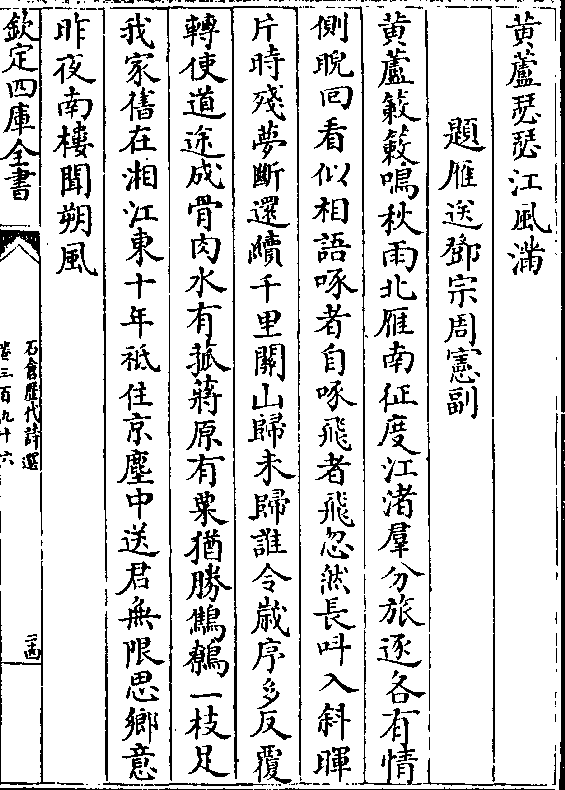 黄蘆瑟瑟江風滿
題雁送鄧宗周憲副
黄蘆簌簌鳴秋雨北雁南征度江渚羣分旅逐各有情
側睨回看似相語啄者自啄飛者飛忽然長呌入斜暉
片時殘夢斷還續千里關山歸未歸誰令歲序多反覆
轉使道途成骨肉水有菰蔣原有粟猶勝鷦鷯一枝足
我家舊在湘江東十年祗住京塵中送君無限思鄉意
昨夜南樓聞朔風
欽定四庫全書
石倉歷代詩選
卷三百九十六